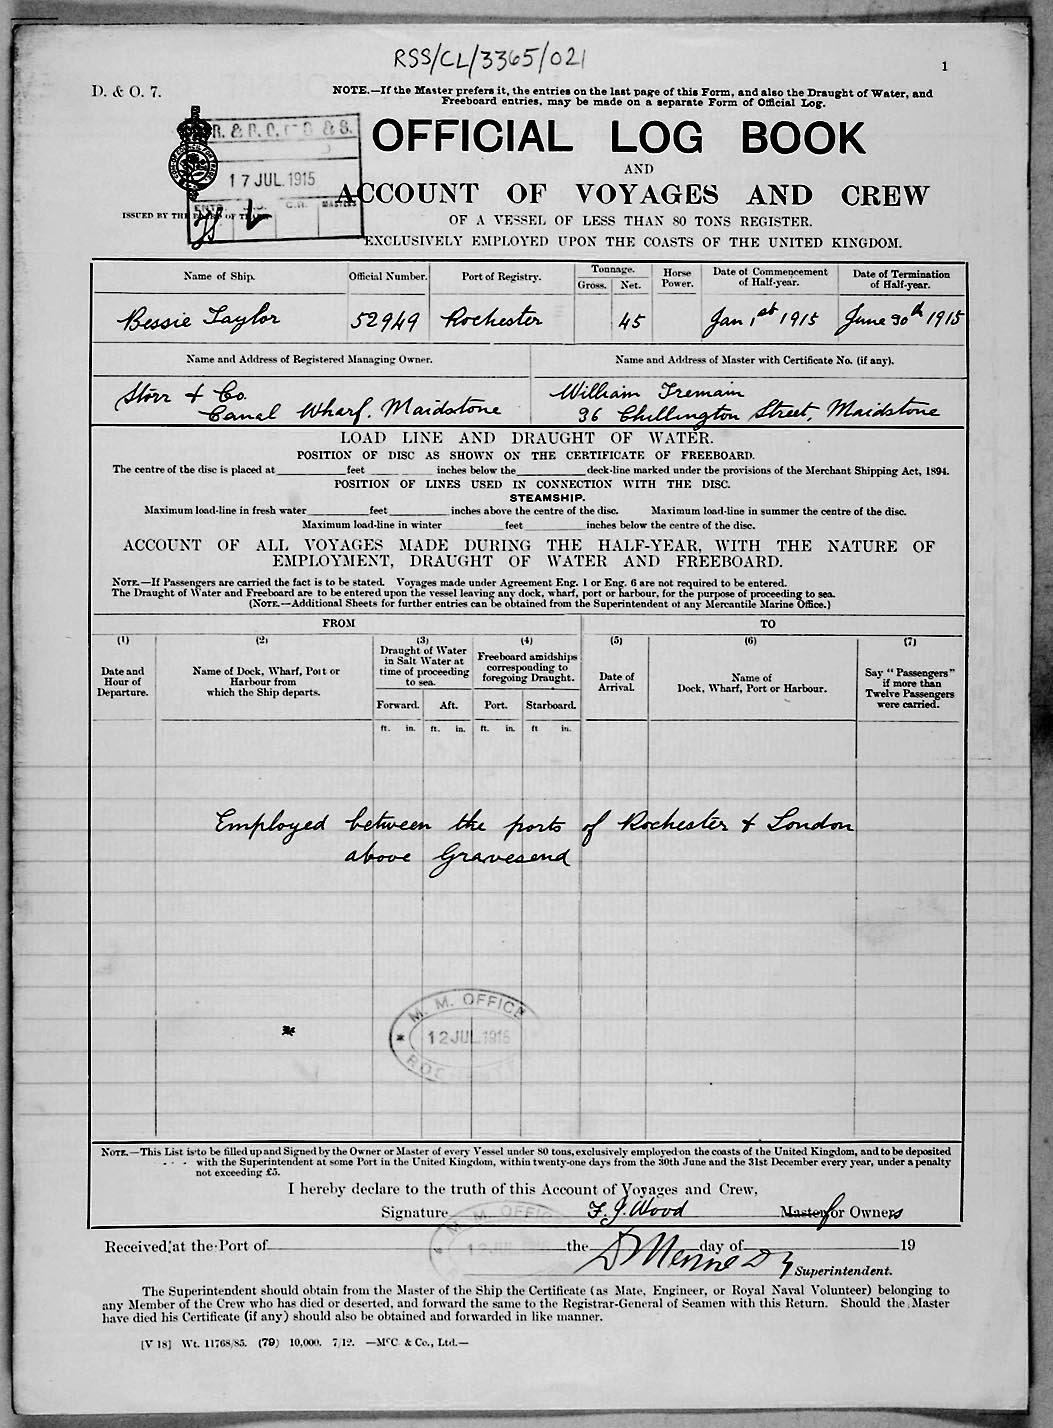 RSS/CL/3365/021
1
D. & O. 7.
NOTE.—If the Master prefers it, the entries on the last page of this Form, and also the Draught of Water, and
Freeboard entries, may be made on a separate Form of Official Log.
OFFICIAL LOG BOOK
AND
ACCOUNT OF VOYAGES AND CREW
OF A VESSEL OF LESS THAN 80 TONS REGISTER.
EXCLUSIVELY EMPLOYED UPON THE COASTS OF THE UNITED KINGDOM.
17 JUL.1915
ISSUED BY THE BOARD OF TRADE
Name of Ship. Official Number. Port of Registry. Tonnage. Gross. Net. Horse Power. Date of Commencement of Half-year. Date of Termination of Half-year.
Bessie Taylor 52949 Rochester 45 Jan 1st 1915 June 30th 1915
Name and Address of Registered Managing Owner. Name and Address of Master with Certificate No. (if any).
Storr & Co. William Tremain
Canal Wharf. Maidstone 36 Chillington Street, Maidstone
LOAD LINE AND DRAUGHT OF WATER.
POSITION OF DISC AS SHOWN ON THE CERTIFICATE OF FREEBOARD.
The centre of the disc is placed at feet inches below the deck-line marked under the provisions of the Merchant Shipping Act, 1894.
POSITION OF LINES USED IN CONNECTION WITH THE DISC.
STEAMSHIP.
Maximum load-line in fresh water feet inches above the centre of the disc. Maximum load-line in summer the centre of the disc.
Maximum load-line in winter feet inches below the centre of the disc.
ACCOUNT OF ALL VOYAGES MADE DURING THE HALF-YEAR, WITH THE NATURE OF
EMPLOYMENT, DRAUGHT OF WATER AND FREEBOARD.
NOTE.—If Passengers are carried the fact is to be stated. Voyages made under Agreement Eng. 1 or Eng. 6 are not required to be entered.
The Draught of Water and Freeboard are to be entered upon the vessel leaving any dock, wharf, port or harbour, for the purpose of proceeding to sea.
(NOTE.—Additional Sheets for further entries can be obtained from the Superintendent of any Mercantile Marine Office.)
FROM TO
(1) (2) (3) (4) (5) (6) (7)
Date and Hour of Departure.
Name of Dock, Wharf, Port or Harbour from which the Ship departs.
Draught of Water in Salt Water at time of proceeding to sea.
Freeboard amidships corresponding to foregoing Draught.
Date of Arrival.
Name of Dock, Wharf, Port or Harbour.
Say "Passengers" if more than Twelve Passengers were carried.
Forward. Aft. Port. Starboard.
ft. in. ft. in. ft. in. ft in.
Employed between the ports of Rochester & London
above Gravesend
M. M. OFFICE
12 JUL.1915
ROCHESTER
NOTE.—This List is to be filled up and Signed by the Owner or Master of every Vessel under 80 tons, exclusively employed on the coasts of the United Kingdom, and to be deposited
with the Superintendent at some Port in the United Kingdom, within twenty-one days from the 30th June and the 31st December every year, under a penalty
not exceeding £5.
I hereby declare to the truth of this Account of Voyages and Crew,
Signature F. J. Wood Master for Owners
M. M. OFFIC
12 JUL 1915
Received at the Port of the day of 19
Superintendent.
The Superintendent should obtain from the Master of the Ship the Certificate (as Mate, Engineer, or Royal Naval Volunteer) belonging to
any Member of the Crew who has died or deserted, and forward the same to the Registrar-General of Seamen with this Return. Should the Master
have died his Certificate (if any) should also be obtained and forwarded in like manner.
[V 18] Wt. 11768/85. (79) 10,000. 7/12. —McC. & Co., Ltd.—